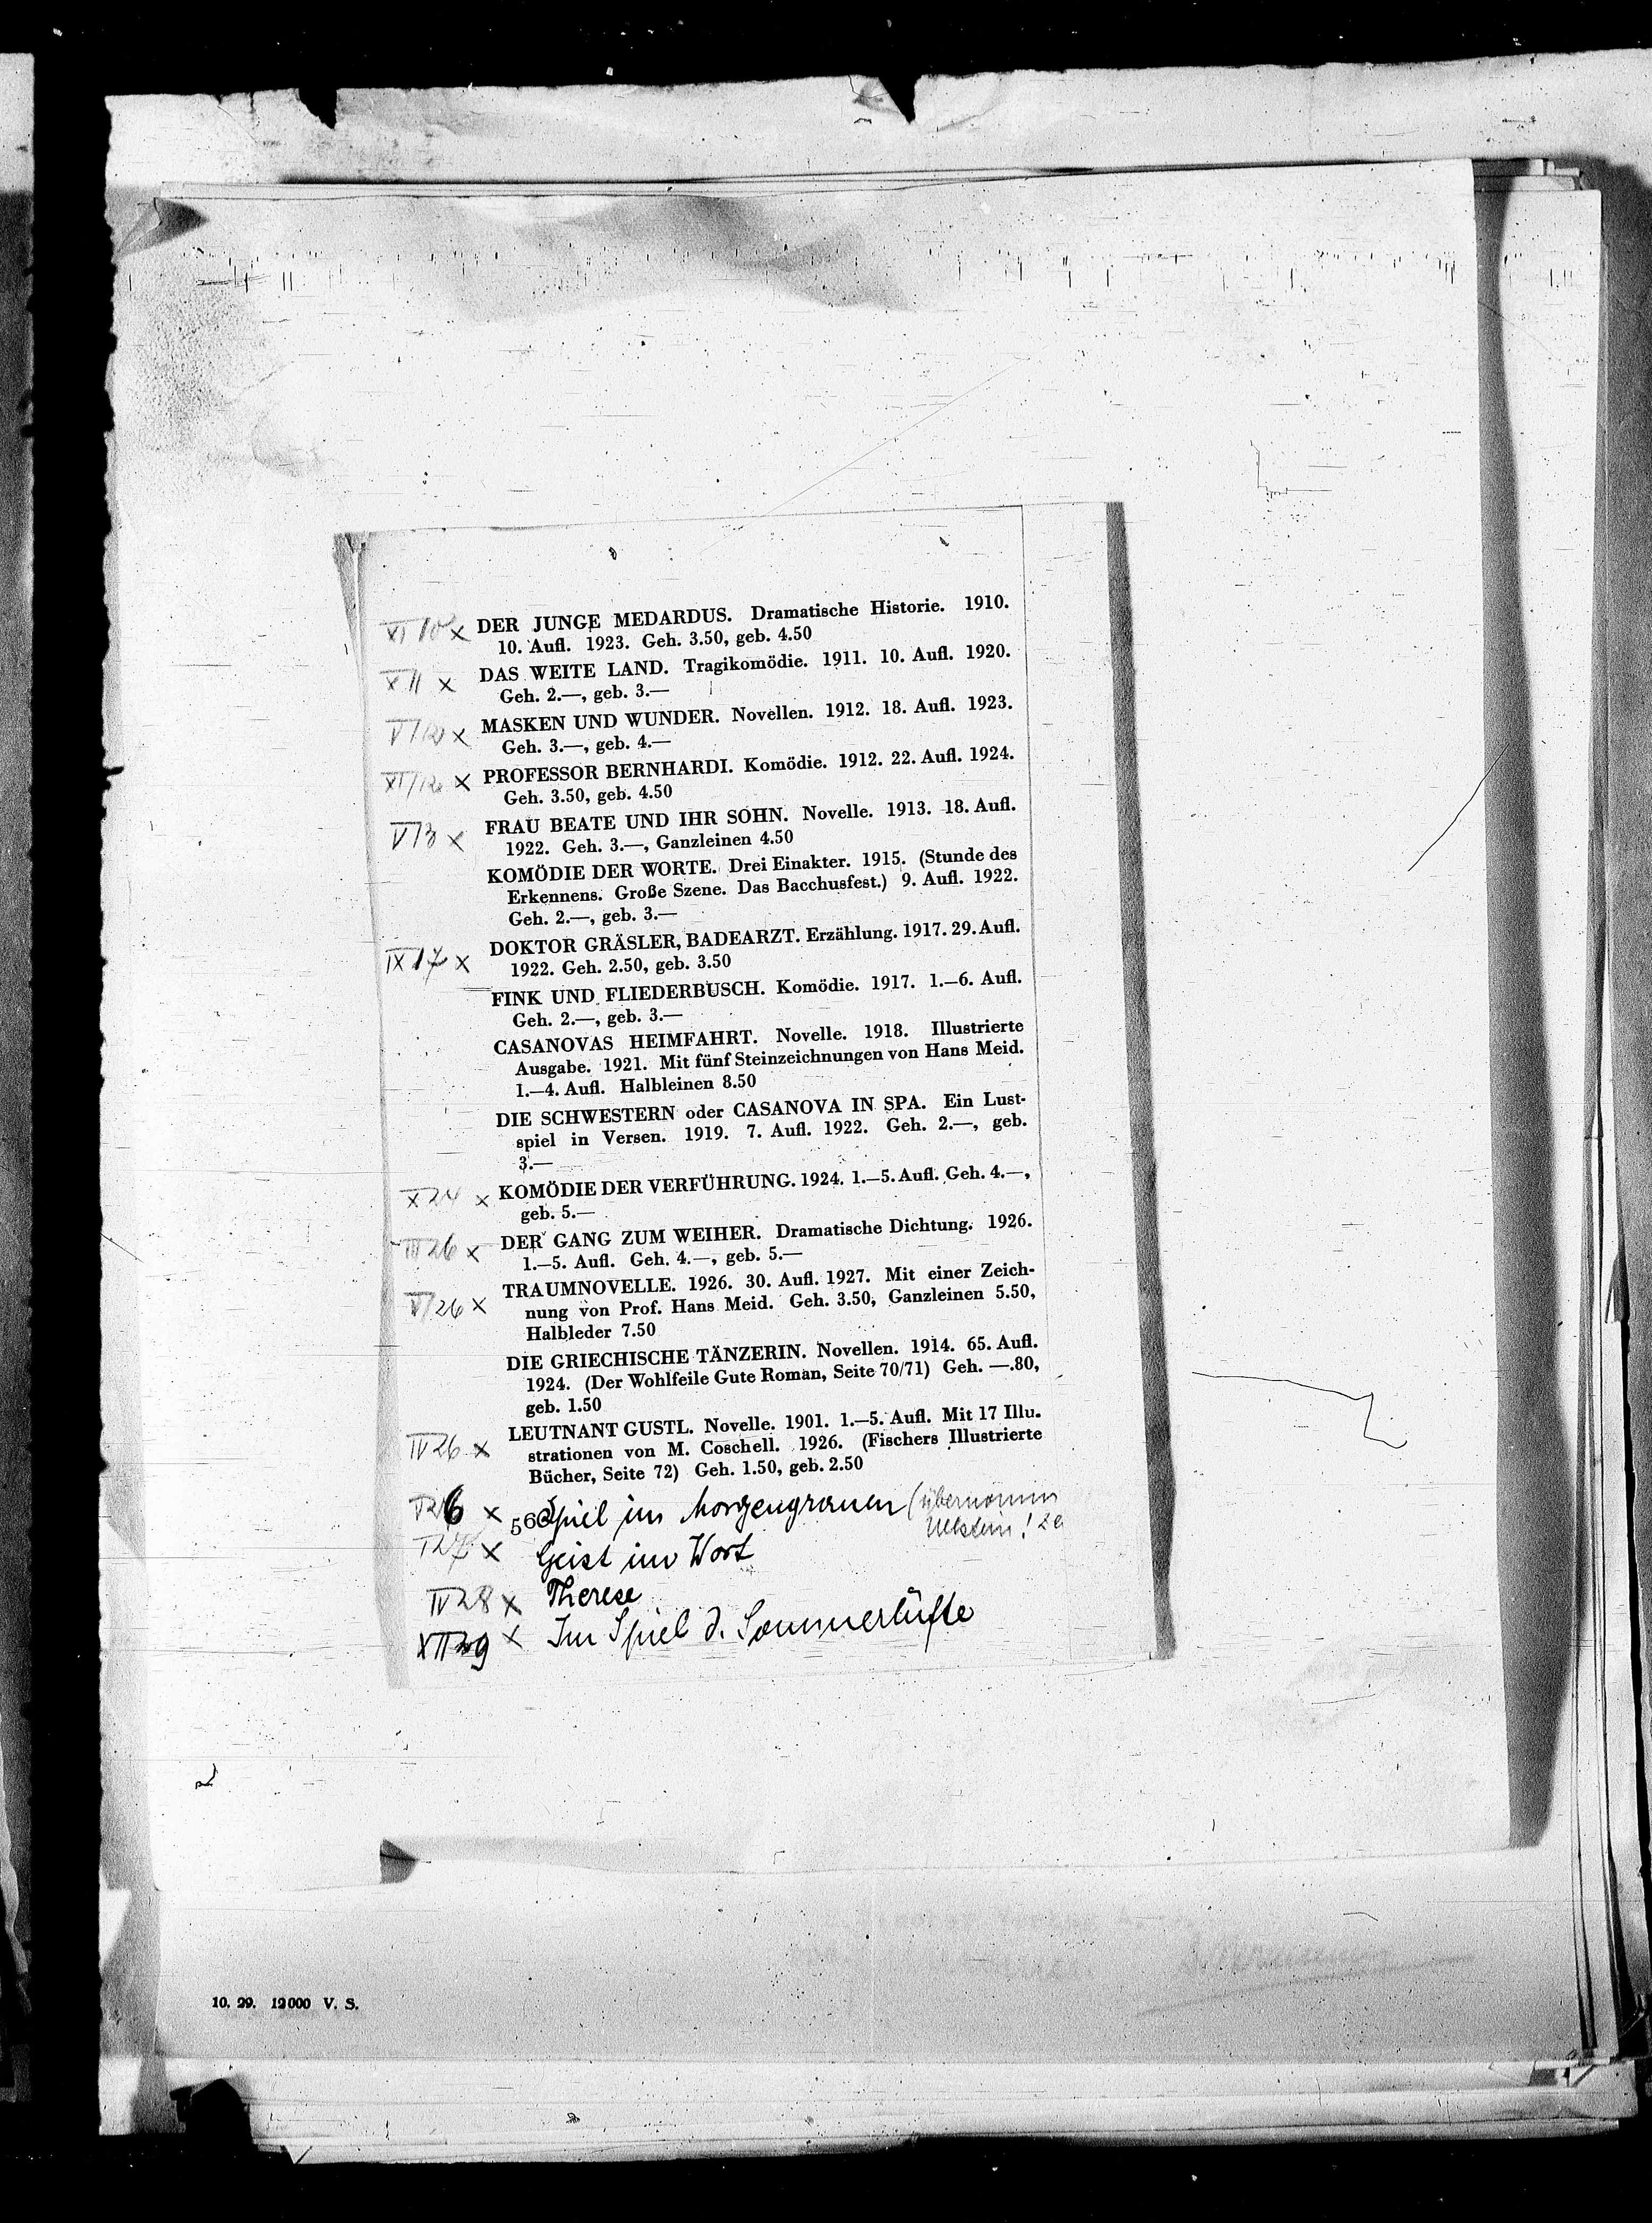 XI 10 x DER JUNGE MEDARDUS. Dramatische Historie. 1910.
10. Aufl. 1923. Geh. 3.50, geb. 4.50
X 11 x DAS WEITE LAND. Tragikomödie. 1911. 10. Aufl. 1920.
Geh. 2.—, geb. 3.—
x MASKEN UND WUNDER. Novellen. 1912. 18. Aufl. 1923.
Geh. 3.—, geb. 4.—
XI/12 x PROFESSOR BERNHARDI. Komödie. 1912. 22. Aufl. 1924.
Geh. 3.50, geb. 4.50
x FRAU BEATE UND IHR SOHN. Novelle. 1913. 18. Aufl.
1922. Geh. 3.—, Ganzleinen 4.50
KOMÖDIE DER WORTE. Drei Einakter. 1915. (Stunde des
Erkennens. Große Szene. Das Bacchusfest.) 9. Aufl. 1922.
Geh. 2.—, geb. 3.—
IX 17 x DOKTOR GRÄSLER, BADEARZT. Erzählung. 1917. 29. Aufl.
1922. Geh. 2.50, geb. 3.50
FINK UND FLIEDERBUSCH. Komödie. 1917. 1.—6. Aufl.
Geh. 2.—, geb. 3.—
CASANOVAS HEIMFAHRT. Novelle. 1918. Illustrierte
Ausgabe. 1921. Mit fünf Steinzeichnungen von Hans Meid.
1.—4. Aufl. Halbleinen 8.50
DIE SCHWESTERN oder CASANOVA IN SPA. Ein Lust-
spiel in Versen. 1919. 7. Aufl. 1922. Geh. 2.—, geb.
3.—
X 24 x KOMÖDIE DER VERFÜHRUNG. 1924. 1.—5. Aufl. Geh. 4.—,
geb. 5.—
III 26 x DER GANG ZUM WEIHER. Dramatische Dichtung. 1926.
1.—5. Aufl. Geh. 4.—, geb. 5.—
V/26 x TRAUMNOVELLE. 1926. 30. Aufl. 1927. Mit einer Zeich-
nung von Prof. Hans Meid. Geh. 3.50, Ganzleinen 5.50,
Halbleder 7.50
DIE GRIECHISCHE TÄNZERIN. Novellen. 1914. 65. Aufl.
1924. (Der Wohlfeile Gute Roman, Seite 70/71) Geh. —.80,
geb. 1.50
IV 26 x LEUTNANT GUSTL. Novelle. 1901. 1.—5. Aufl. Mit 17 Illu-
strationen von M. Coschell. 1926. (Fischers Illustrierte
Bücher, Seite 72) Geh. 1.50, geb. 2.50
x 56 Spiel im Morgengrauen (übernomm
Ullstein!
x Geist im Wort
IV 28 x Therese
XII 29 x Im Spiel d. Sommerlüfte
10. 29. 12000 V. S.